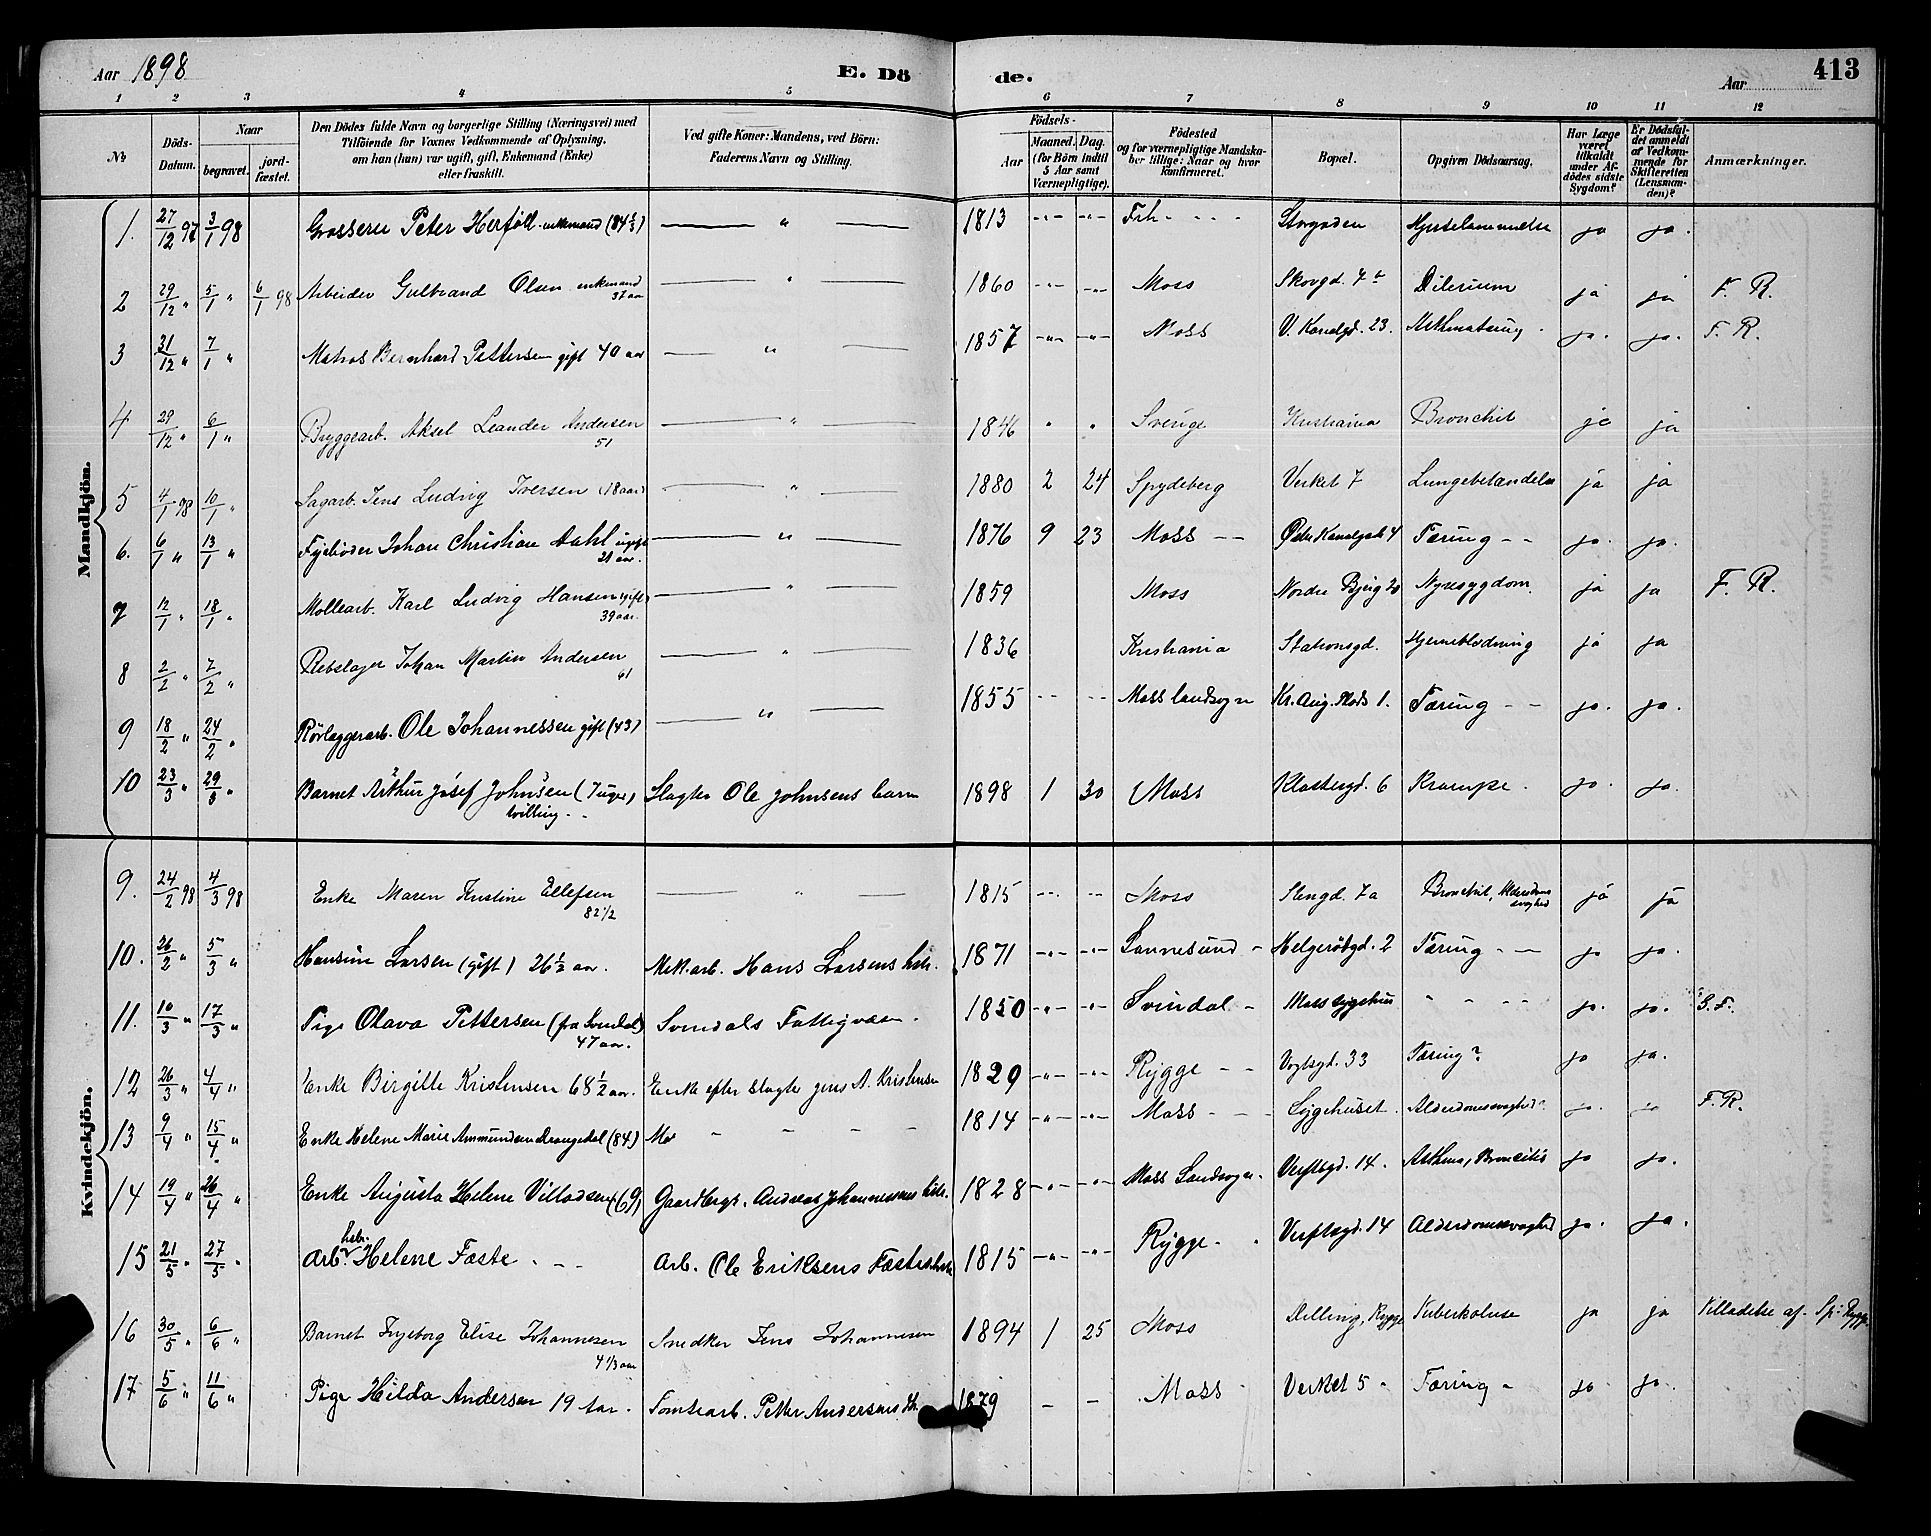 Aar 1898 E. Dö de. Aar 413
1 2 3 4 5 6 7 8 9 10 11 12
№ Döds-Datum. Naar begravet. jordfæstet. Den Dödes fulde Navn og borgerlige Stilling (Næringsvei) med Tilföiende for Voxnes Vedkommende af Oplysning, om han (hun) var ugift, gift, Enkemand (Enke) eller fraskilt. Ved gifte Koner: Mandens, ved Börn: Faderens Navn og Stilling. Födsels- Aar Maaned. Dag. (for Börn indtil 5 Aar samt Værnepligtige). Födested og for værnepligtige Mandskaber tillige: Naar og hvor konfirmeret. Bopæl. Opgiven Dödsaarsag. Har Læge været tilkaldt under Afdödes sidste Sygdom? Er Dödsfaldet anmeldt af Vedkommende for Skifteretten (Lensmanden)? Anmærkninger.
Mandkjön.
1. 27/12 97 3/1 98 Grosserer Peter Herföll enkemand (84 1/2) — " — 1813 -"- -"- Frh - - - Storgaden ja ja.
2 29/12 " 5/1 " 6/1 98 Arbeider Gulbrand Olsen enkemand 37 aar — " — 1860 -"- -"- Moss Skovgd. 7 Dilerium ja ja F. R.
3 31/12 " 7/1 " Matros Bernhard Pettersen gift 40 aar — " — 1857 -"- -"- Moss V. Kanalgd. 23. ja. ja. F. R.
4 29/12 " 6/1 " Bryggearb. Aksel Leander Andersen 51 — " — 1846 " " Sverige Kristiania Bronchit ja ja
5 4/1 98 10/1 " Sagarb. Jens Ludvig Iversen (18 aar) — " — 1880 2 24 Spydeberg Verket 7 Lungebetændelse ja ja
6. 6/1 " 13/1 " Fyrböder Johan Christian Dahl ugift 21 aar. — " — 1876 9 23 Moss -- Östre Kanalgade 4 Tæring -- ja. ja.
7 12/1 " 18/1 " Möllearb. Karl Ludvig Hansen gift 39 aar. — " — 1859 Moss Nordre Bjerg 20 Nyresygdom. ja ja F. R.
8 2/2 " 7/2 " Rebslager Johan Martin Andersen 61 — " — 1836 Kristiania Stationsgd. Hjerneblödning ja ja
9 18/2 " 24/2 " Rörlæggerarb. Ole Johannessen gift (43) — " — 1855 -- -- Moss landsogn Kr. Aug. Plads 1. Tæring -- ja. ja.
10 23/3 " 29/3 " Barnet Arthur Josef Johnsen (7 uger) tvilling. Slagter Ole Johnsens barn 1898 1 30 Moss Klostergd. 6 Krampe. ja. ja.
Kvindekjön.
9. 24/2 98 4/3 98 Enke Maren Kristine Ellefsen 82 1/2 — " — 1815 -"- -"- Moss Stengd. 7a Bronchit, Alderdomssvaghed ja ja
10. 26/2 " 5/3 " Hansine Larsen (gift) 26 1/2 aar. Mek. arb. Hans Larsens hstr. 1871 -"- -"- Sannesund - Helgerödgd. 2 Tæring -- ja ja.
11. 10/3 " 17/3 " Pige Olava Pettersen (fra Svindal) 47 aar. Svindals Fattigvæsen. 1850 -"- -"- Svindal - Moss sygehus " " " " ja. ja.
12 26/3 " 4/4 " Enke Birgitte Kristensen 68 1/2 aar. Enke efter slagter Jens A. Kristensen 1829 -"- -"- Rygge -- Vogtsgd. 33 Tæring? ja ja.
13 9/4 " 15/4 " Enke Helene Marie Ammundsen Drangedal (84) - - - - 1814 -"- -"- Moss - - Sygehuset. Alderdomssvaghed ja. ja F. R.
14 19/4 " 26/4 " Enke Augusta Helene Villadsen (69) Gaardbrgr. Andreas Johannessens hstr. 1828 -"- -"- Moss Landsogn. Verftsgd. 14. Asthma, Broncitis ja ja.
15 21/5 " 27/5 " Arb. hstr. Helene Fæste - - - Arb. Ole Eriksens Fæstes hstr. 1815 -"- -"- Rygge - . Verftsgd. 14 Alderdomssvaghed ja. ja.
16 30/5 " 6/6 " Barnet Ingeborg Elise Johannesen 4 1/3 aar Snedker Jens Johannesen 1894 1 25 Moss Dilling, Rygge Tuberkolose ja ja Tilladelse af Sp. Rygge
17 5/6 " 11/6 " Pige Hilda Andersen 19 aar. Tomtearb. Petter Andersens dt. 1879 - - Moss Verket 5 - Tæring - ja - ja.